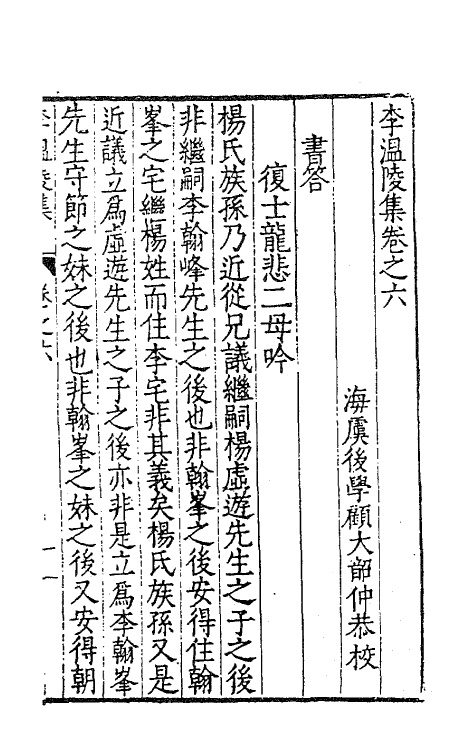 李溫陵集卷之六
海虞後學顧大韶仲恭校
書答
復士龍悲二母吟
楊氏族孫乃近從兄議繼嗣楊虛遊先生之子之後
非繼嗣李翰峰先生之後也非翰峯之後安得住翰
峯之宅繼楊姓而住李宅非其義矣楊氏族孫又是
近議立爲虛遊先生之子之後亦非是立爲李翰峯
先生守節之妹之後也非翰峯之妹之後又安得朝
李溫陵集 卷之六 一